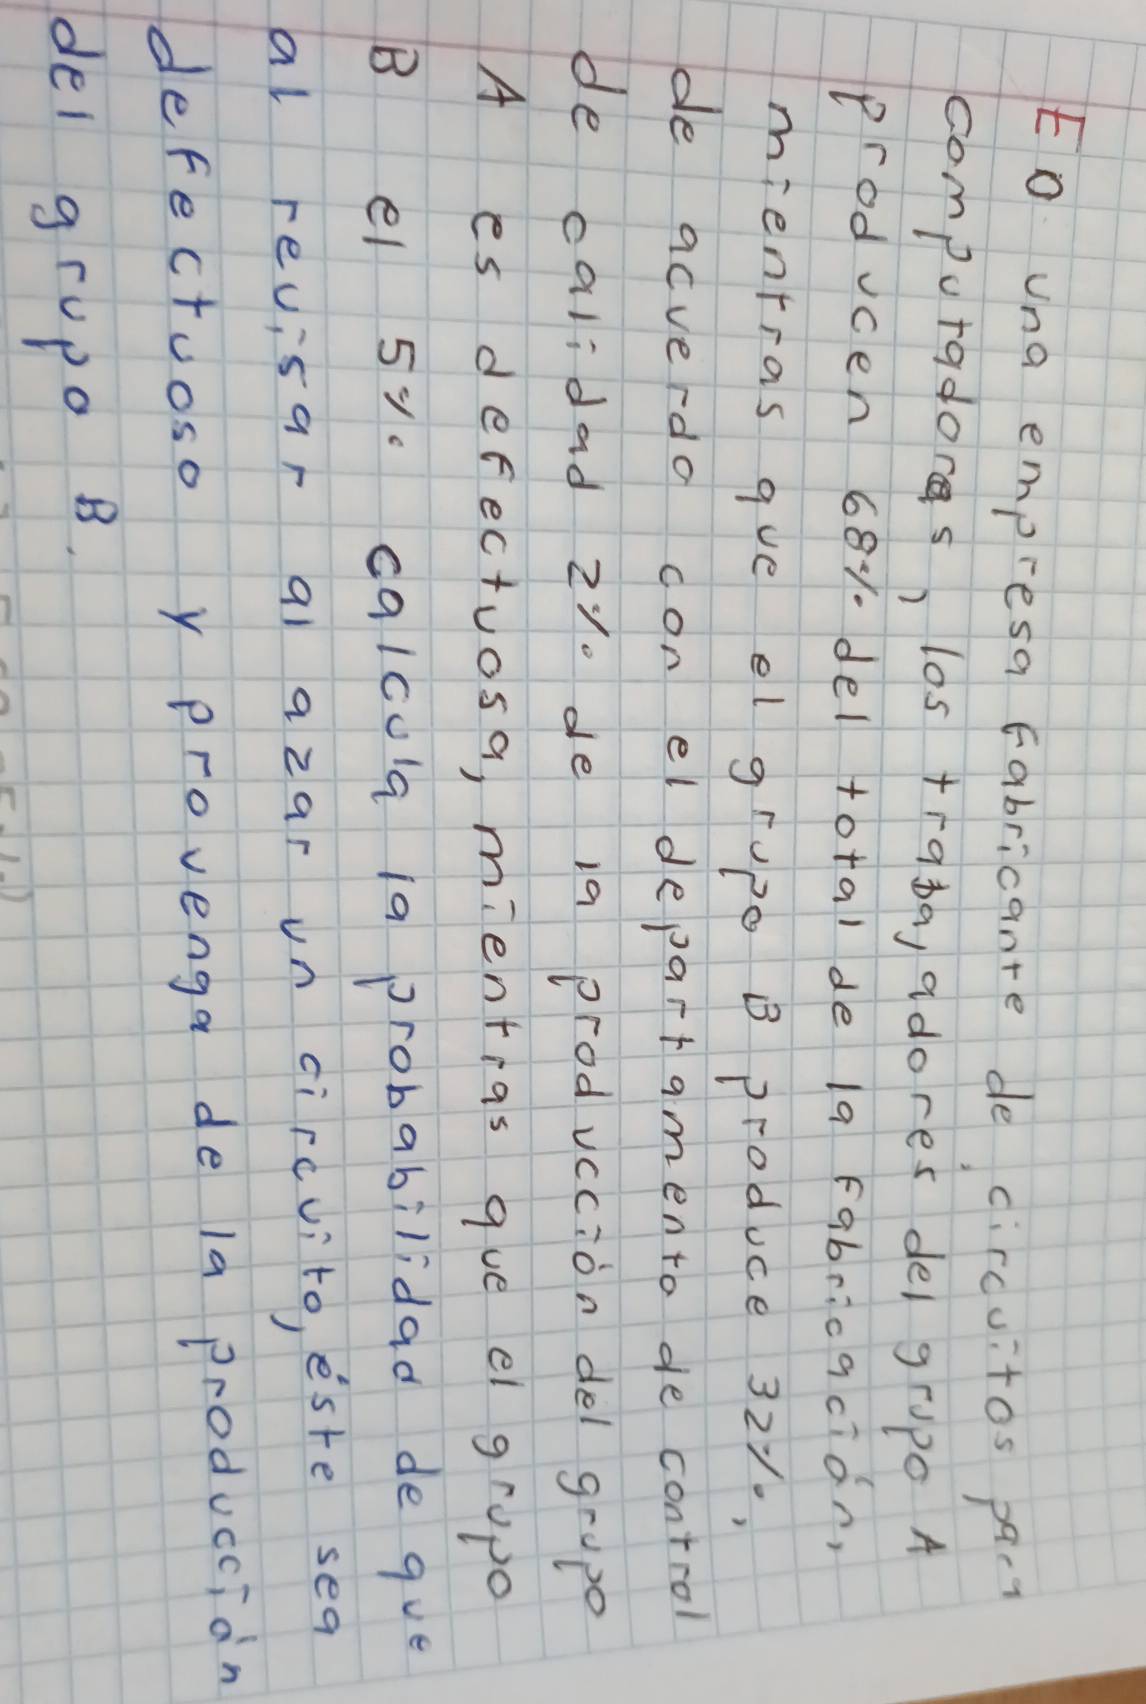 EO una empresa fabricante de circuitos para
computadoras, los trabajadores del grupo A
producen 68% del total de la fabricación,
mientras que el grupo B produce 32%,
de acuerdo con el departamento de control
de calidad 2% de la producción del grupo
A es defectuosa, mientras que el grupo
B el 5% calcula la probabilidad de que
al revisar al azar un circuito, éste sea
defectuoso y provenga de la producción
del grupo B.